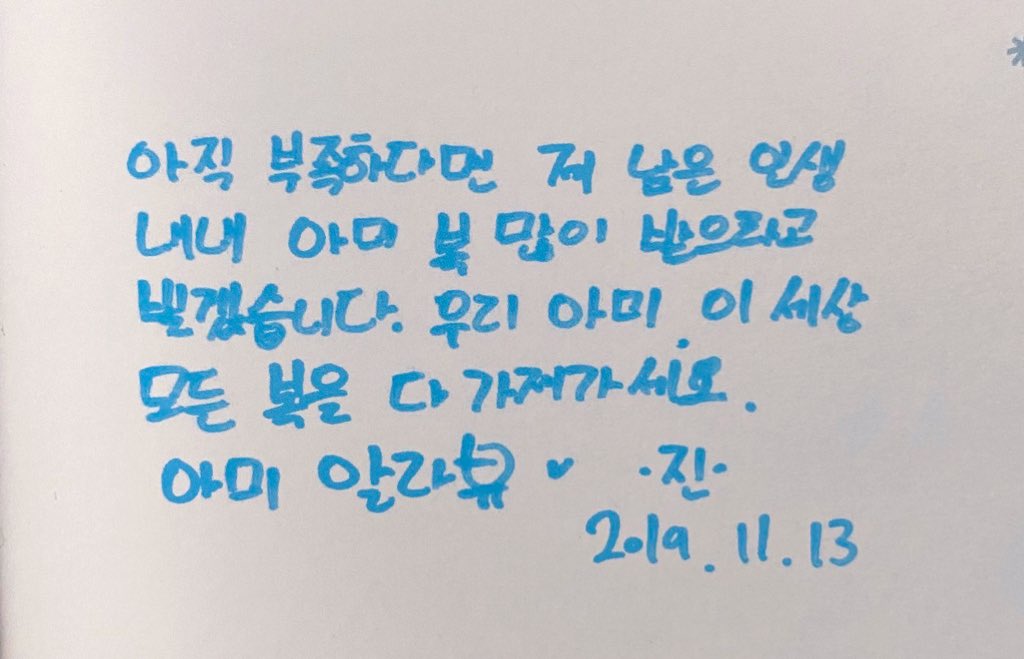 아직 부족하다면 저 남은 인생
내내 아미 복 많이 받으라고
빌겠습니다. 우리 아미 이 세상
모든 복을 다 가져가세요.
아미 알라뷰 ♥ ·진·
2019.11.13